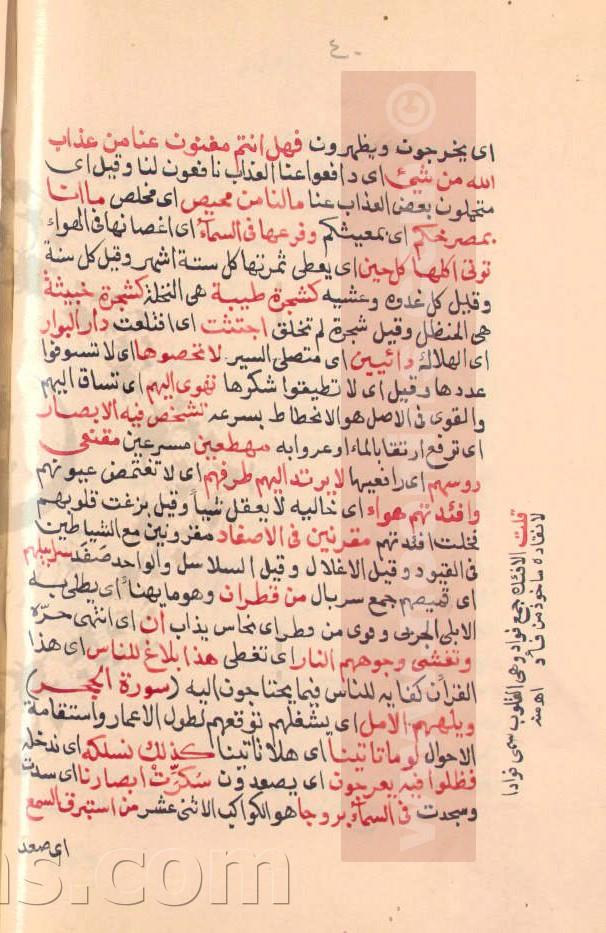 ٤٠
اى يخرجون ويظهرون فهل انتم مغنون عنا من عذاب
الله من شيئ اى دافعوا عنا العذاب نافعون لنا وقيل اى
متحملون بعض العذاب عنا مالنا من محيص اى مخلص ما انا
بمصرخكم اى بمعينكم وفرعها فى السمآء اى اغصانها فى الهواء
توتى اكلها كل حين اى يعطى ثمرتها كل ستة اشهر وقيل كل سنة
وقيل كل غدوه وعشيه كشجرة طيبة هى النخلة كشجرة خبيثة
هى الحنظل وقيل شجرة لم تخلق اجتثت اى اقتلعت دار البوار
اى الهلاك دائبين اى متصلى السير لا تحصوها اى لا تستوفوا
عددها وقيل اى لا تطيقوا شكرها تهوى اليهم اى تساق اليهم
والهوى فى الاصل هو الانحطاط بسرعه تشخص فيه الابصار
اى ترفع مهطعين مسرعين مقنعى
روسهم اى رافعيها لا يرتد اليهم طرفهم اى لا تغتمض عيونهم
وافئدتهم هواء اى خاليه لا يعقل شياً وقيل نزغت قلوبهم
فخلت افئدتهم مقرنين فى الاصفاد مقرونين مع الشياطين
فى القيود وقيل الاغلال وقيل السلاسل والواحد صَفَد سرابيلهم
اى قميصهم جمع سربال من قطران وهو ما يهنأ اى يطلى به
الابل الجربى وقرى من قطر اى نحاس يذاب أن اى انتهى حرّه
وتغشى وجوههم النار اى تغطى هذا بلاغ للناس اى هذا
القرآن كفايه للناس فيما يحتاجون اليه (سورة الحجر)
ويلههم الامل اى يشغلهم توقعهم لطول الاعمار واستقامة
الاحوال لوما تاتينا اى هلا تاتينا كذلك نسلكه اى ندخله
فظلوا فيه يعرجون اى يصعدون سُكِّرَتْ ابصارنا اى سدت
وسجدت فى السمآء بروجا هو الكواكب الاثنى عشر من استرق السمع
اى صعد
قلت الافئدة جمع فواد وهى القلوب سمى فوادا
لاتقاده ماخوذ من فأد اهـ منه